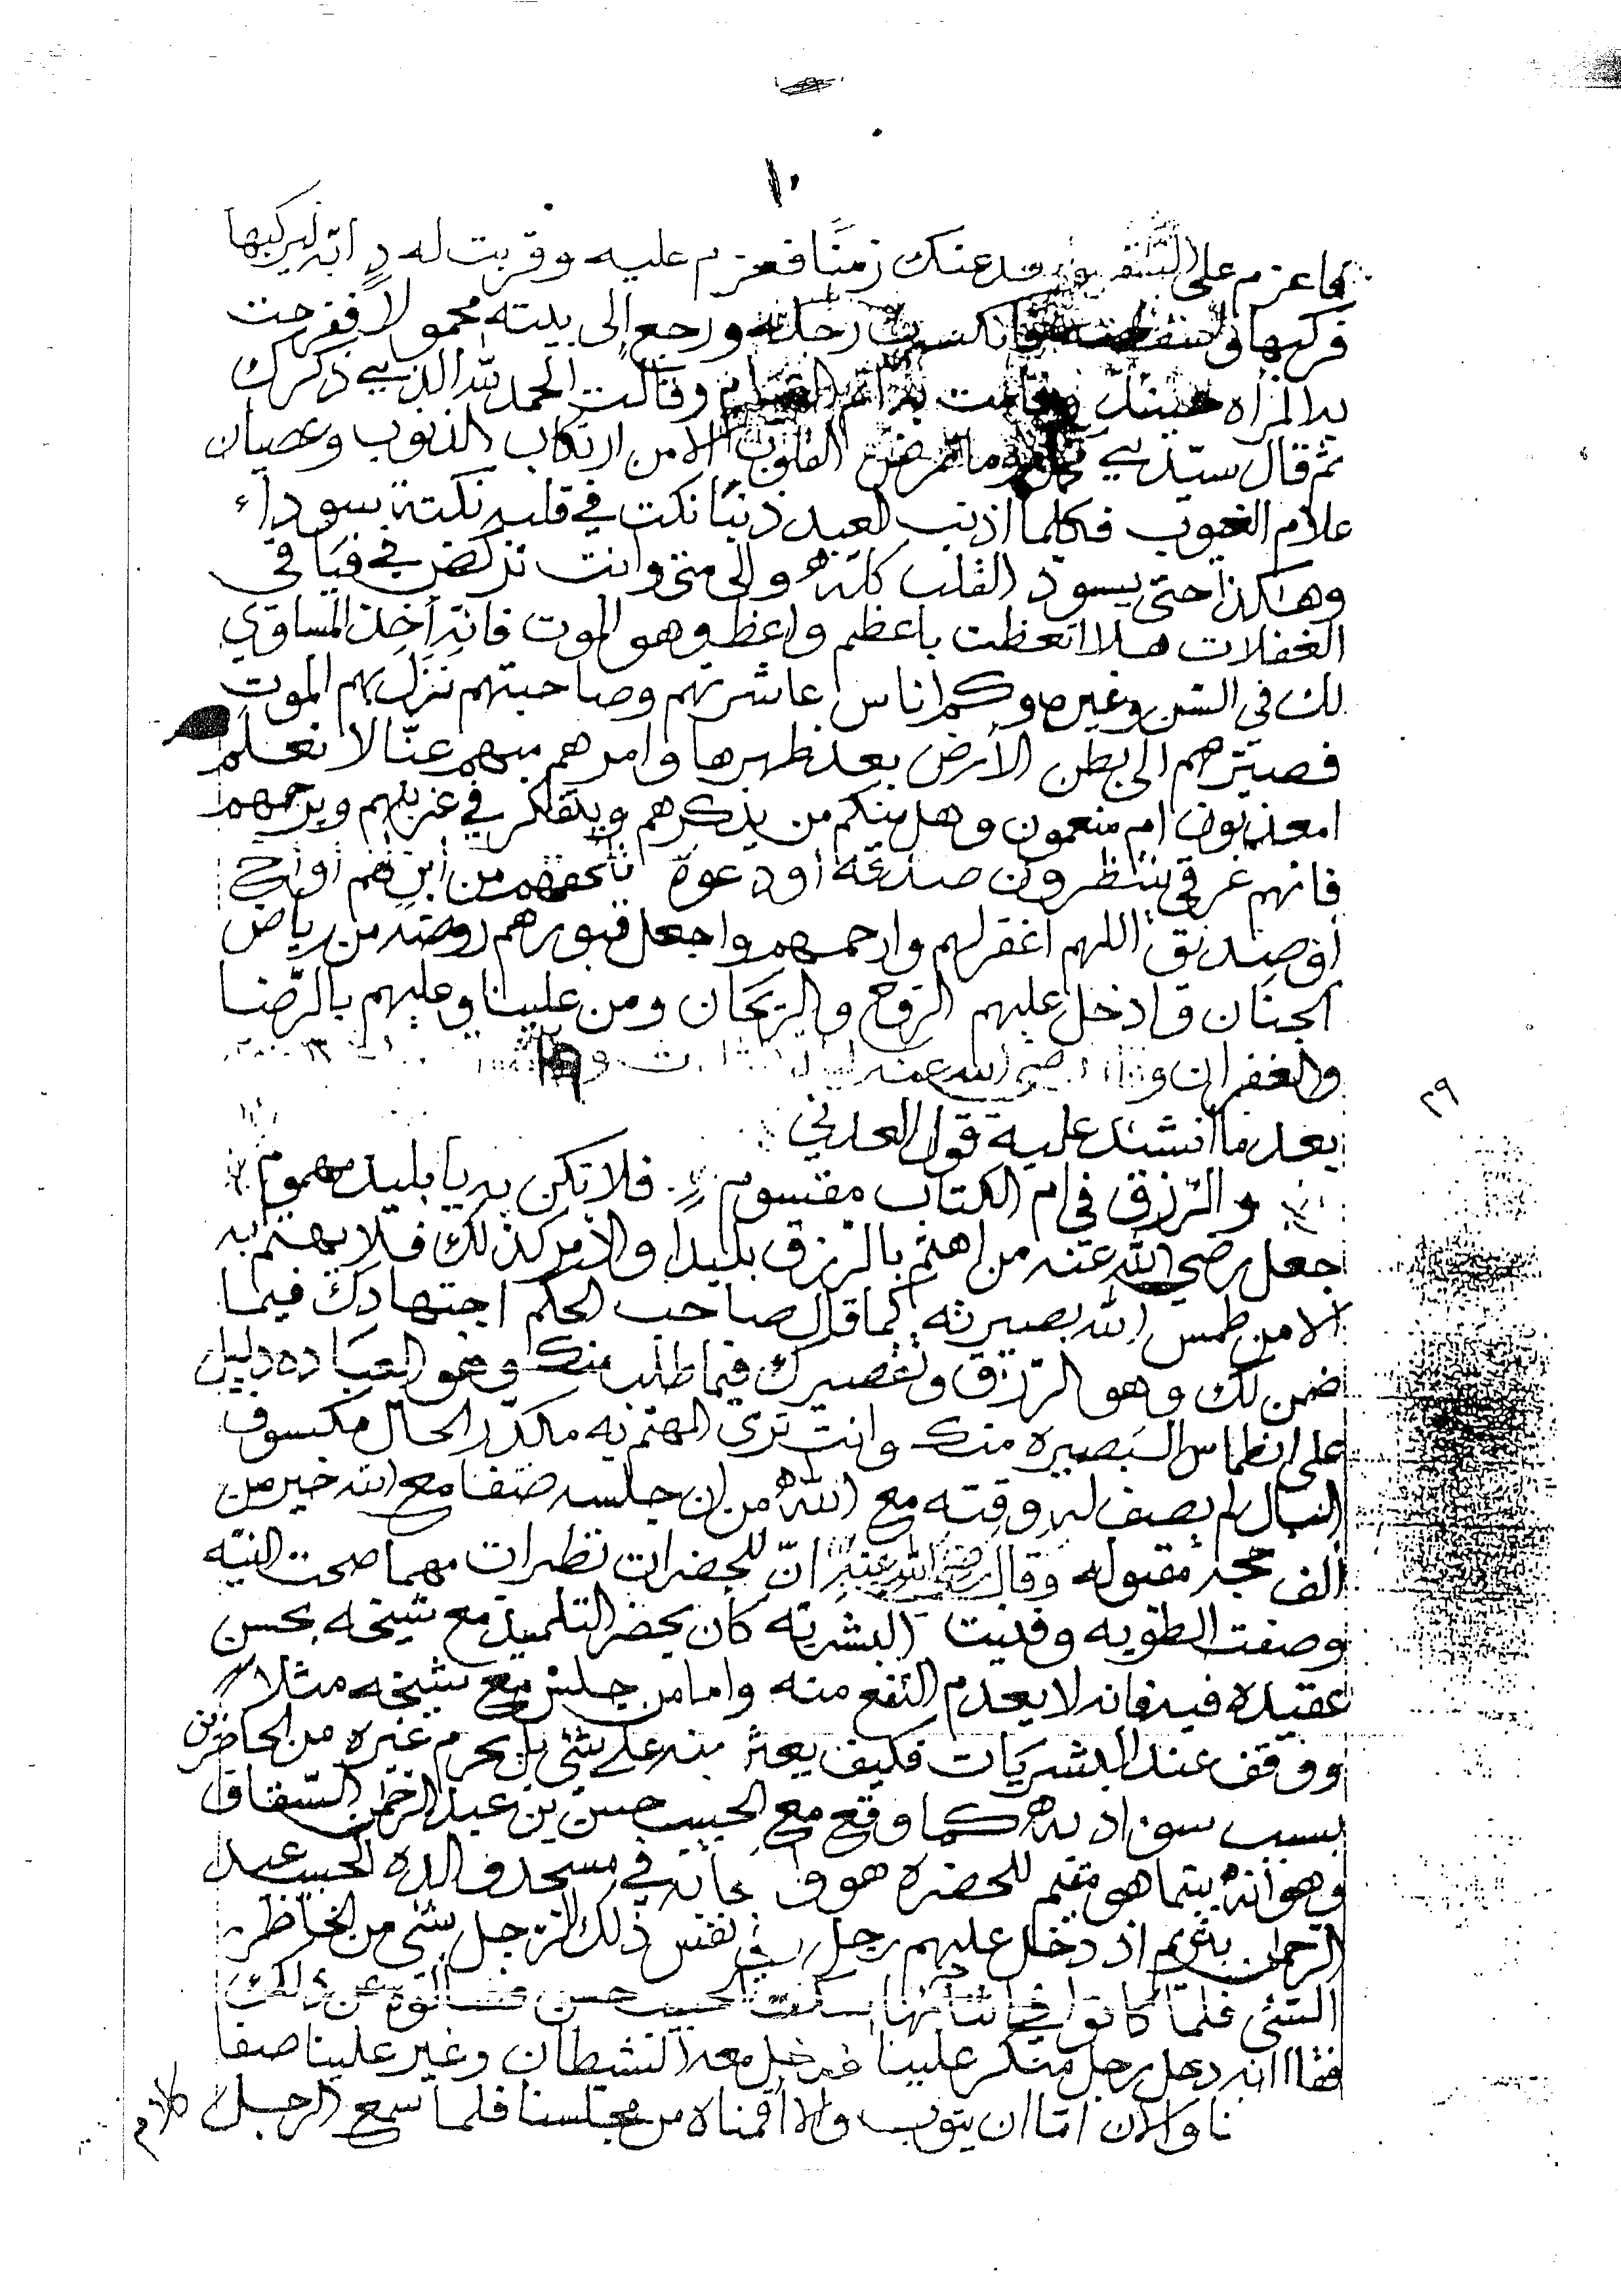 ١٠
كما عزم على عنك زمنا فعزم عليه وقربت له دابة ليركبها
فركبها فانكسرت رجله ورجع الى بيته محمولا ففرحت
به المرأه حينئذ وقالت الحمد لله الذي ذكرك
ثم قال سيدي وما تمرض القلوب الا من ارتكاب الذنوب وعصيان
علام الغيوب فكلما اذنب العبد ذنبا نكت في قلبه نكتة سوداء
وهكذا حتى يسود القلب كله والى متى وانت تركض في فيافي
الغفلات هلا اتعظت باعظم واعظ وهو الموت فانه أخذ المساوي
لك في السن وغيره وكم اناس عاشرتهم وصاحبتهم نزل بهم الموت
فصيرهم الى بطن الأرض بعد ظهرها وامرهم مبهم عنا لا نعلم
امعذبون ام منعمون وهل منكم من يذكرهم ويتفكر في غربتهم ويرحمهم
فانهم غرقى ينتظرون صدقة أو دعوة تلحقهم من أبن لهم أو أخ
أو صديق اللهم اغفر لهم وارحمهم واجعل قبورهم روضة من رياض
الجنان وادخل عليهم الروح والريحان ومن علينا وعليهم بالرضا
والغفران و رضي الله عنه
بعد ما انشد عليه قول العدني
والرزق في ام الكتاب مقسوم فلا تكن به يا بليد مهموم
جعل رضي الله عنه من اهتم بالرزق بليدا والأمر كذلك فلا يهتم به
الا من طمس الله بصيرته كما قال صاحب الحكم اجتهادك فيما
ضمن لك وهو الرزق وتقصيرك فيما طلب منك وهو العباده دليل
على انطماس البصيره منك وانت ترى المهتم به مكدر الحال مكسوف
البال لم يصف له وقته مع الله من لان جلسه صفا مع الله خير من
ألف مقبوله وقال رضي الله عنه ان للحضرات نظرات مهما صحت النيه
وصفت الطويه وفنيت البشريه كان يحضر التلميذ مع شيخه بحسن
عقيده فيه فانه لا يعدم النفع منه واما من جلس مع شيخه مثلا
ووقف عند البشريات فكيف يعثر منه على شئ بل يحرم غيره من الحاضرين
بسبب سوء ادبه كما وقع مع الحبيب حسن بن عبد الرحمن السقاف
وهو أنه بينما هو مقيم للحضره هو في مسجد والده الحبيب عبد
الرحمن بتريم اذ دخل عليهم رجل في نفس ذلك الرجل شئ من الخاطر
الشئ فلما كانوا في اثنائها سكت الحبيب حسن فسألوه عن ذلك
فقال انه دخل رجل منكر علينا فدخل معه الشيطان وغير علينا صفا
نا والان اما ان يتوب والا أقمناه من مجلسنا فلما سمع الرجل كلام
٢٩